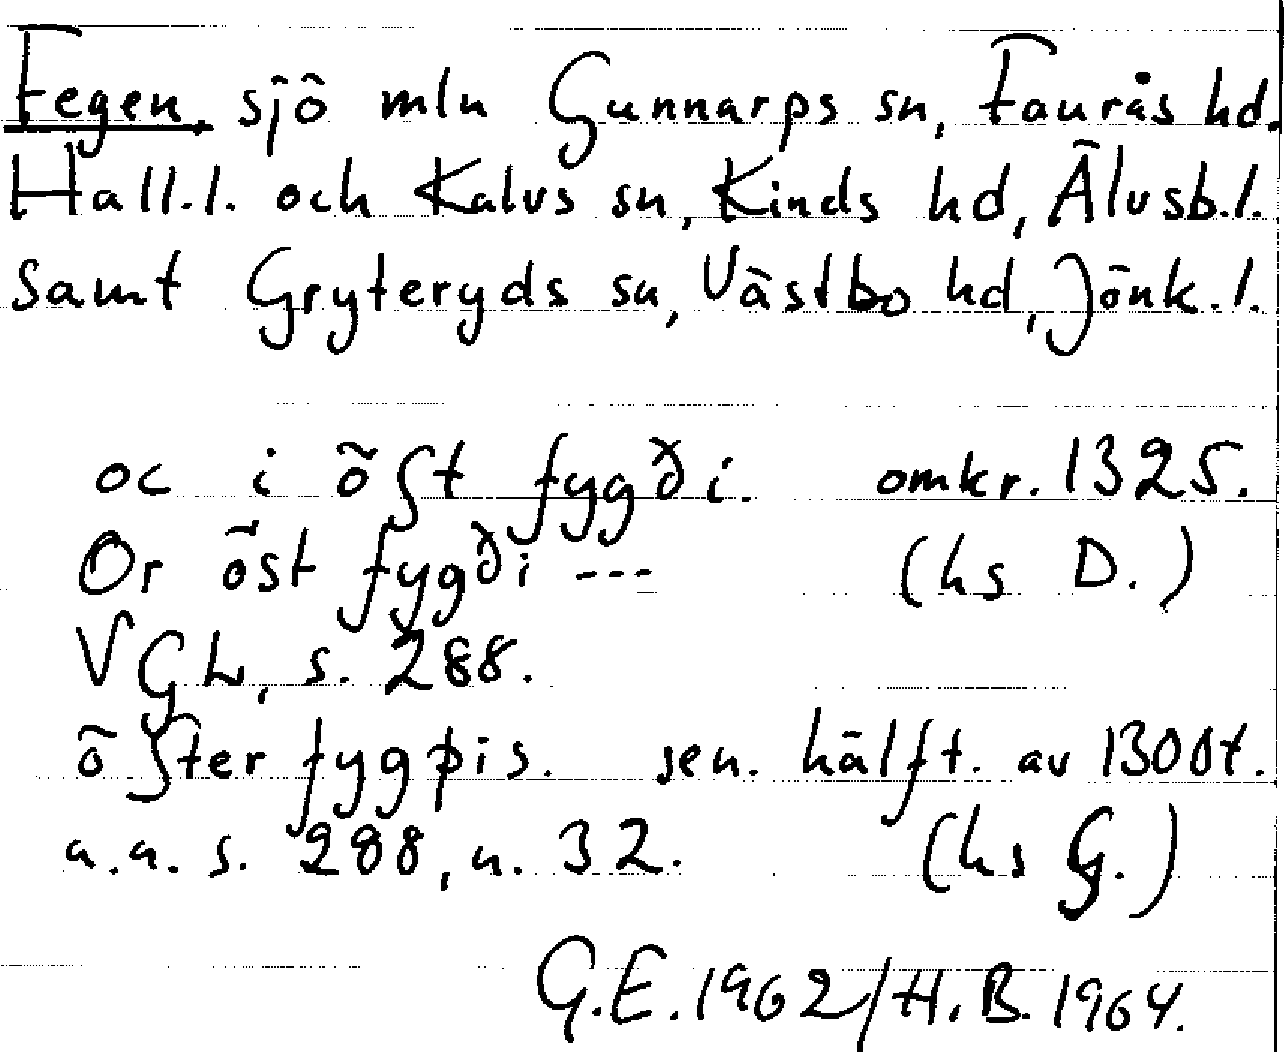 Fegen, sjö mln Gunnarps sn, Faurås hd.
Hall.l. och Kalvs sn, Kinds hd, Älvsb.l.
samt Gryteryds sn, Västbo hd, Jönk.l.
oc i öſt fygði. omkr. 1325.
Or öst fygði --- (hs D.)
VGL, s. 288.
öſter fygþis. sen. hälft. av 1300t.
a.a. s. 288, n. 32. (hs G.)
G.E. 1962/H.B. 1964.